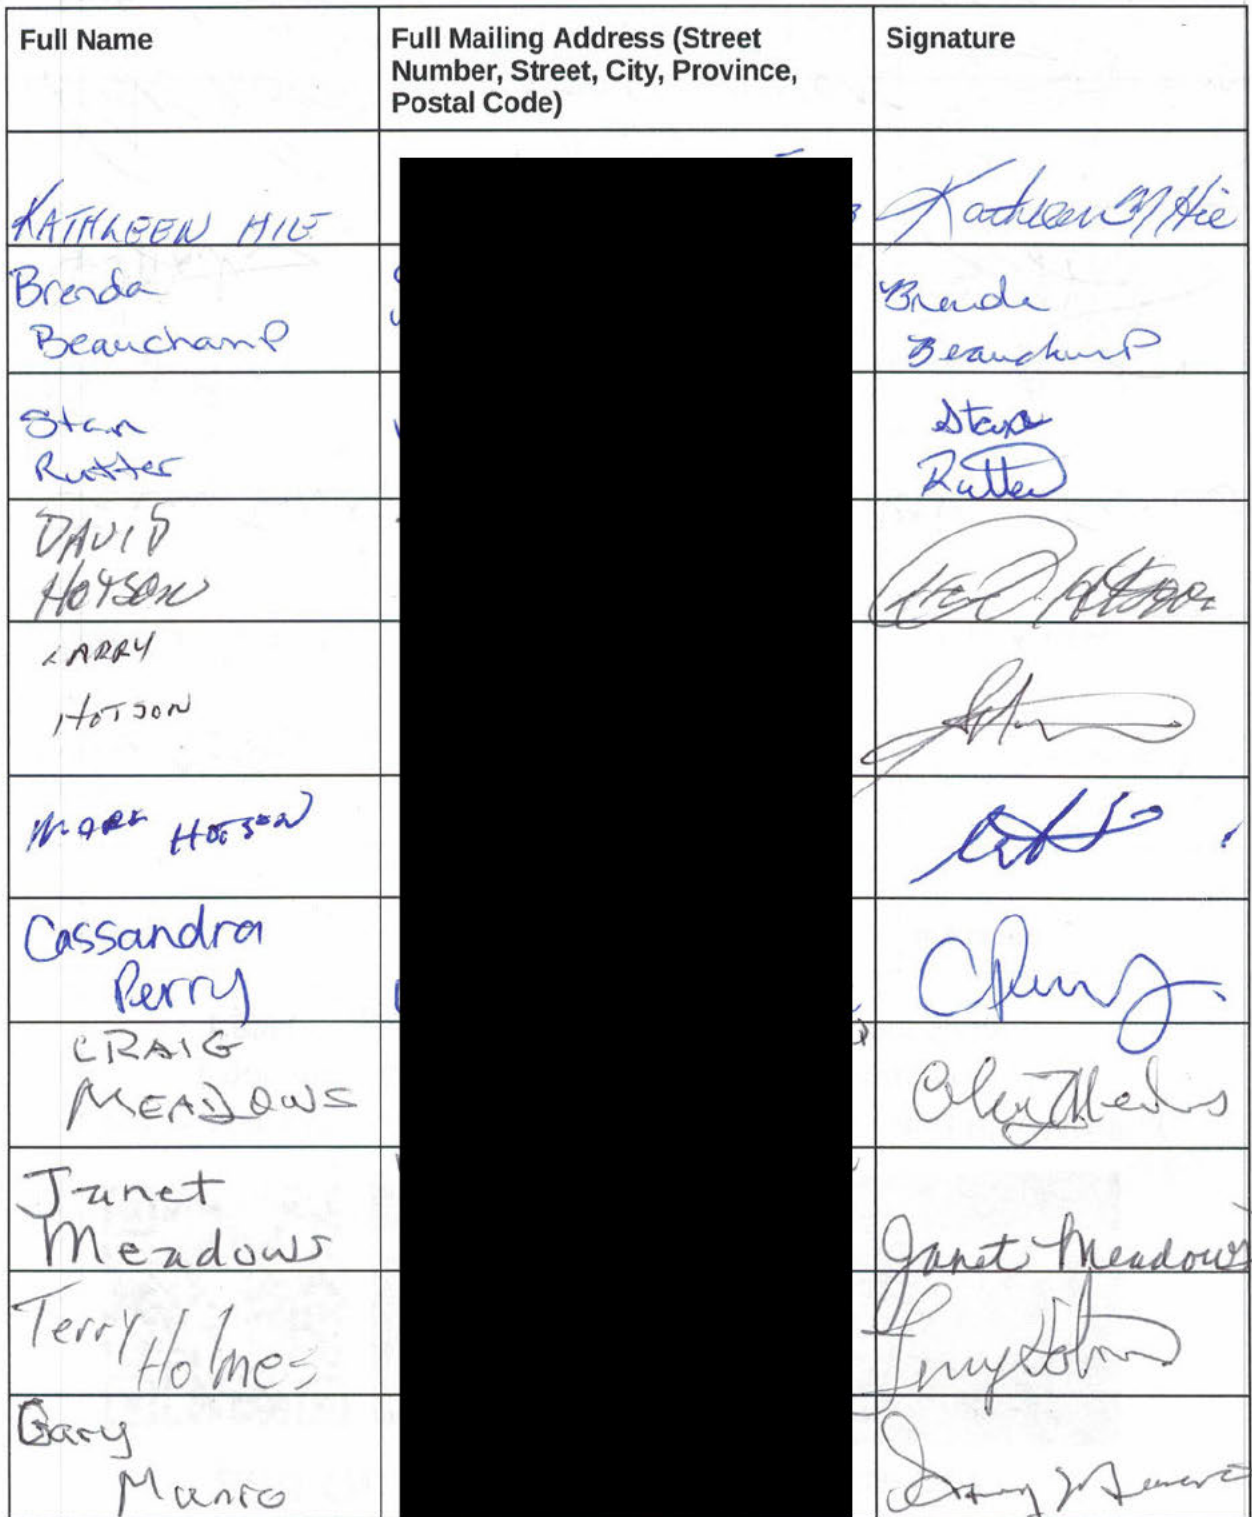 Full Name
Full Mailing Address (Street
Number, Street, City, Province,
Postal Code)
Signature
KATHLEEN
Kathleen M
Brenda
Beauchamp
Brenda
Beauchamp
Stan
Rutter
Stan
Rutter
DAVID
HOTSON
LARRY
HOTSON
MARK HOTSON
Cassandra
Perry
CPerry
CRAIG
MEADOWS
Janet
Meadows
Janet Meadows
Terry
Holmes
Terry Holmes
Gary
Munro
Gary Munro